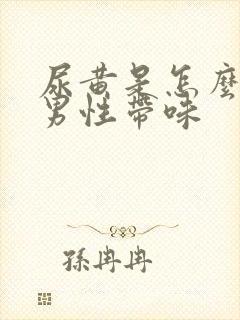 尿黄是怎麼
男性帶味
孫冉冉